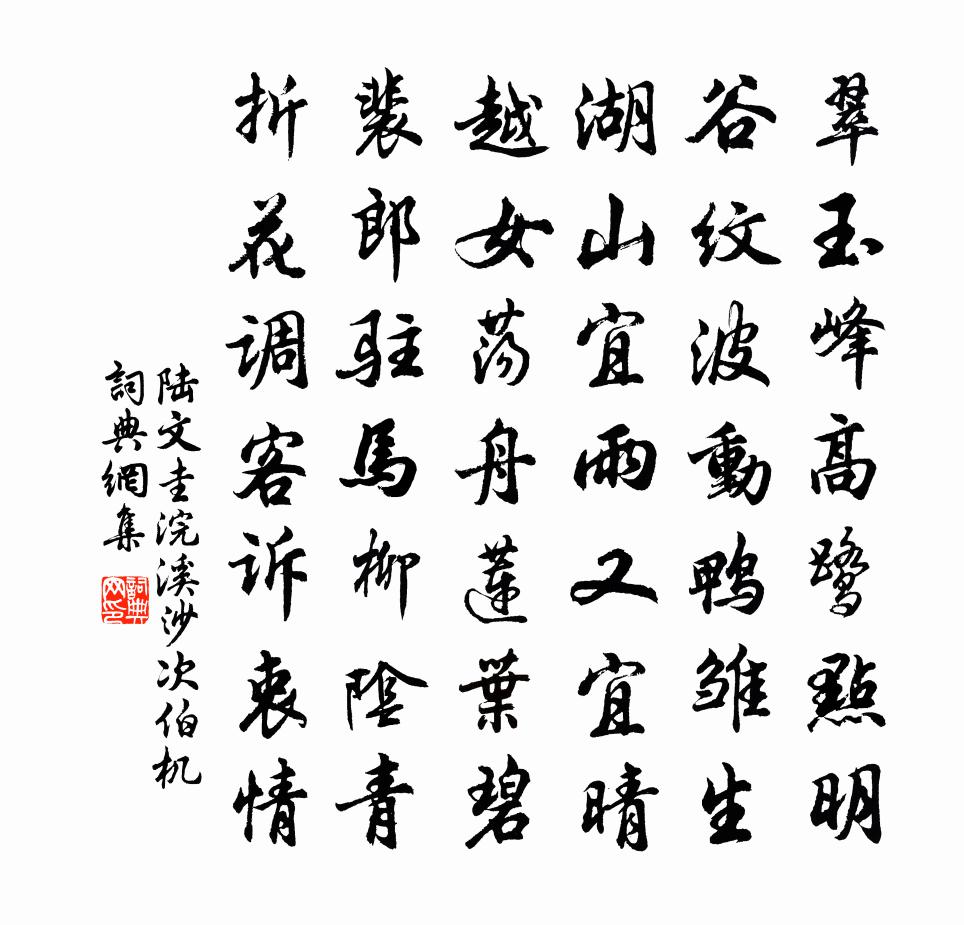 翠玉峰高鹭點明
谷纹波動鴨雏生
湖山宜雨又宜晴
越女荡舟蓮葉碧
裴郎駐馬柳陰青
折花调客诉衷情
陆文圭浣溪沙次伯机
詞典網集
詞典網印